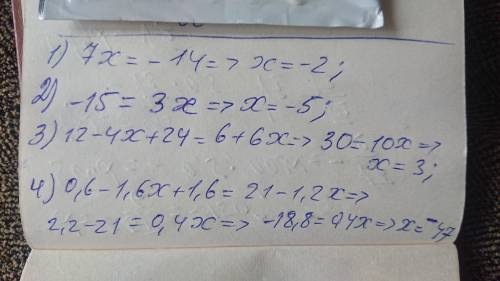 1) 7x = - 14 => x = -2;
2) -15 = 3x => x = -5;
3) 12 - 4x + 24 = 6 + 6x => 30 = 10x =>
x = 3;
4) 0,6 - 1,6x + 1,6 = 21 - 1,2x =>
2,2 - 21 = 0,4x => -18,8 = 0,4x => x = -47